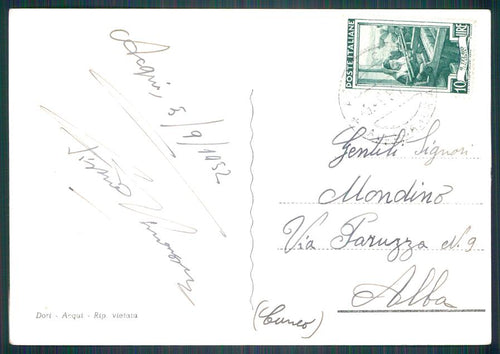 Acqui, 3/9/1952
POSTE ITALIANE
10 LIRE
Gentili Signori
Mondino
Via Paruzza N. 9
Alba
(Cuneo)
Dori - Acqui - Rip vietata